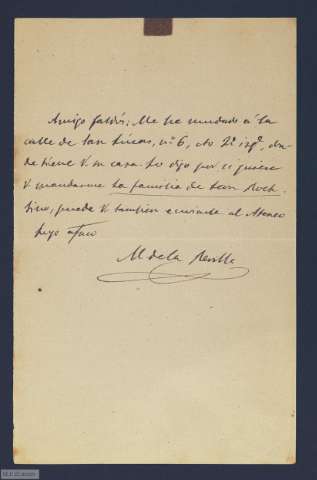 Amigo Galdós: Me he mudado á la
calle de San Lúcas, nº 6, cto 2º izqª, don-
de tiene V. su casa. Lo digo por si quiere
V. mandarme La familia de Leon Roch.
Sino, puede V. tambien enviarla al Ateneo
Suyo afmo
M de la Revilla